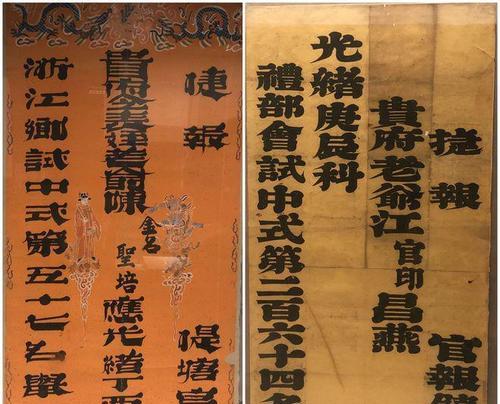 捷報 提塘官
貴府老爺陳金名聖培應光緒丁酉
浙江鄉試中式第五十七名
捷報 官報
貴府老爺江官印昌燕
光緒庚辰科
禮部會試中式第二百六十四名